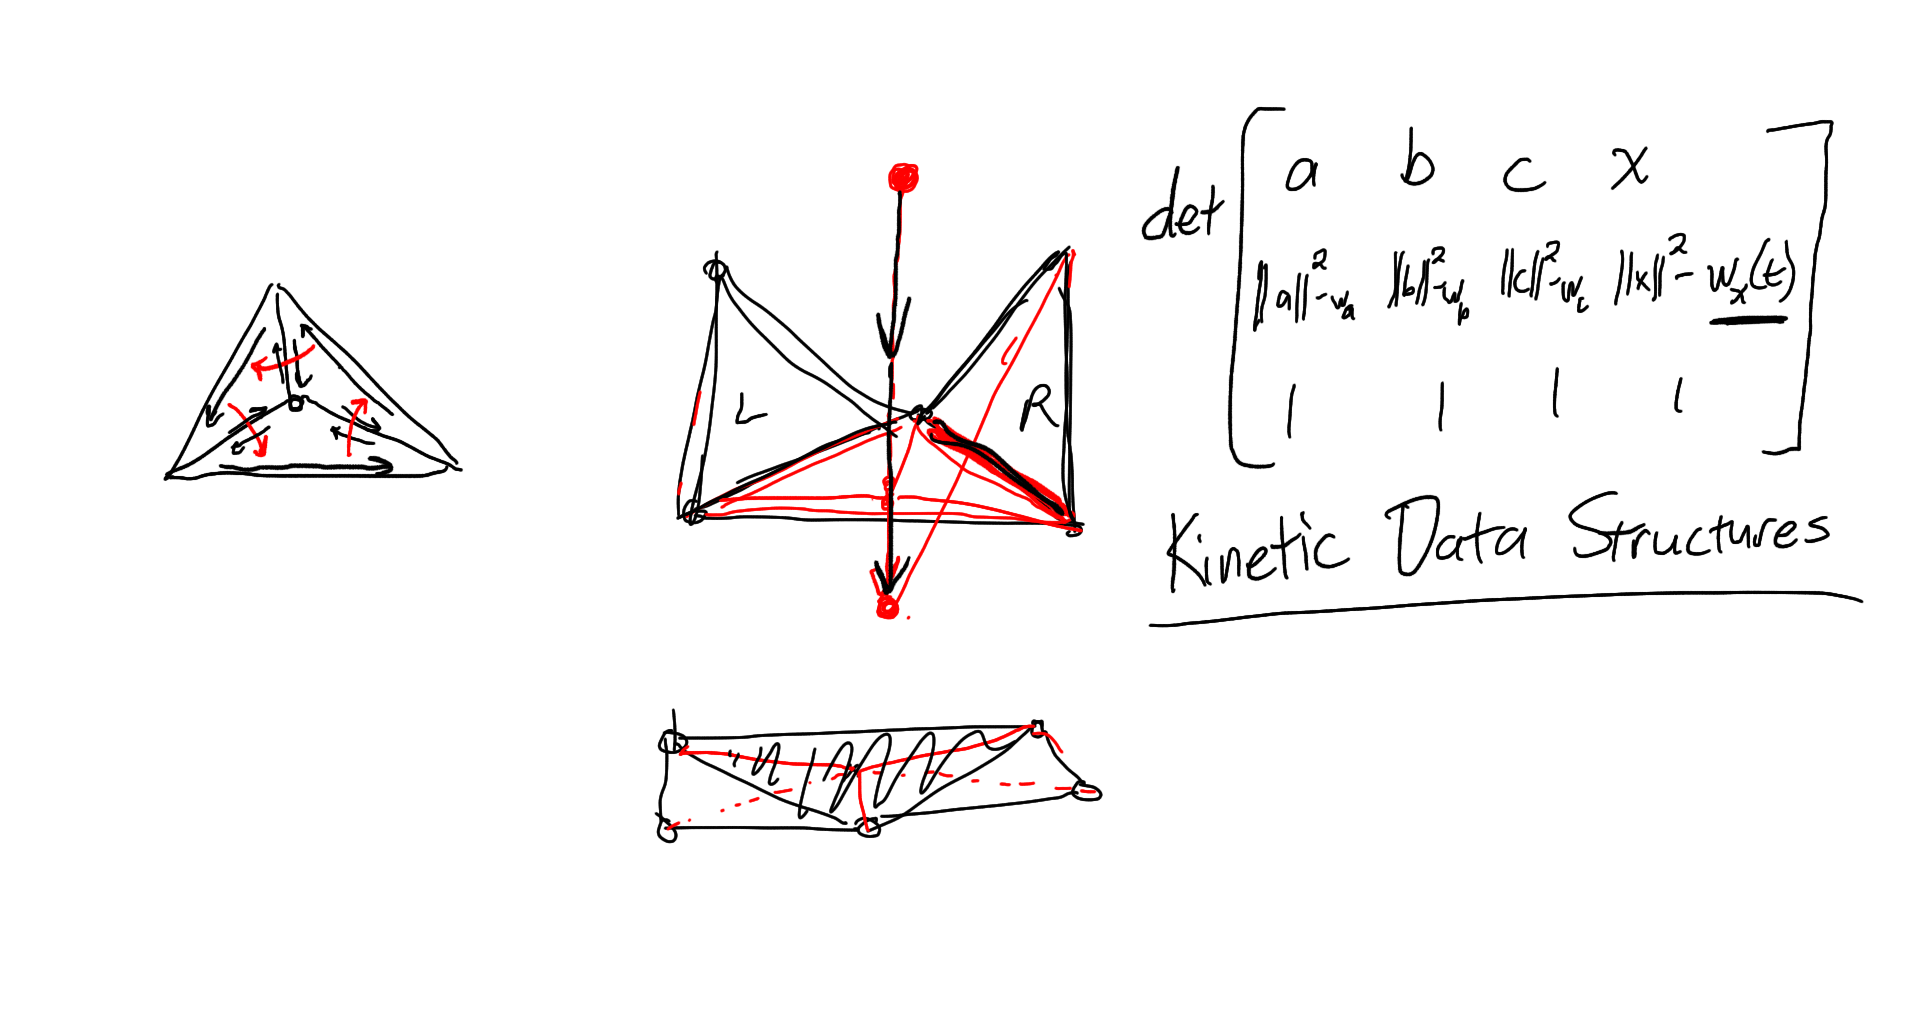 L
R
det
a b c x
||a||²-wₐ ||b||²-w_b ||c||²-w_c ||x||²-wₓ(t)
1 1 1 1
Kinetic Data Structures